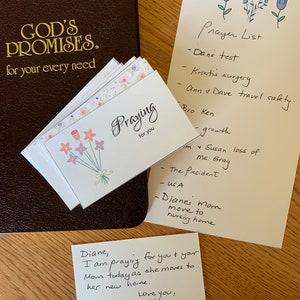 GOD'S
PROMISES®
for your every need
Praying
for you
Prayer List
- Dan's test
- Kristi's surgery
- Ann & Dave travel safety
Bro Ken
growth
& Susan loss of
Ms. Gray
- The President
- USA
- Diane's mom
move to
nursing home
Diane,
I am praying for you & your
Mom today as she moves to
her new home.
Love you,